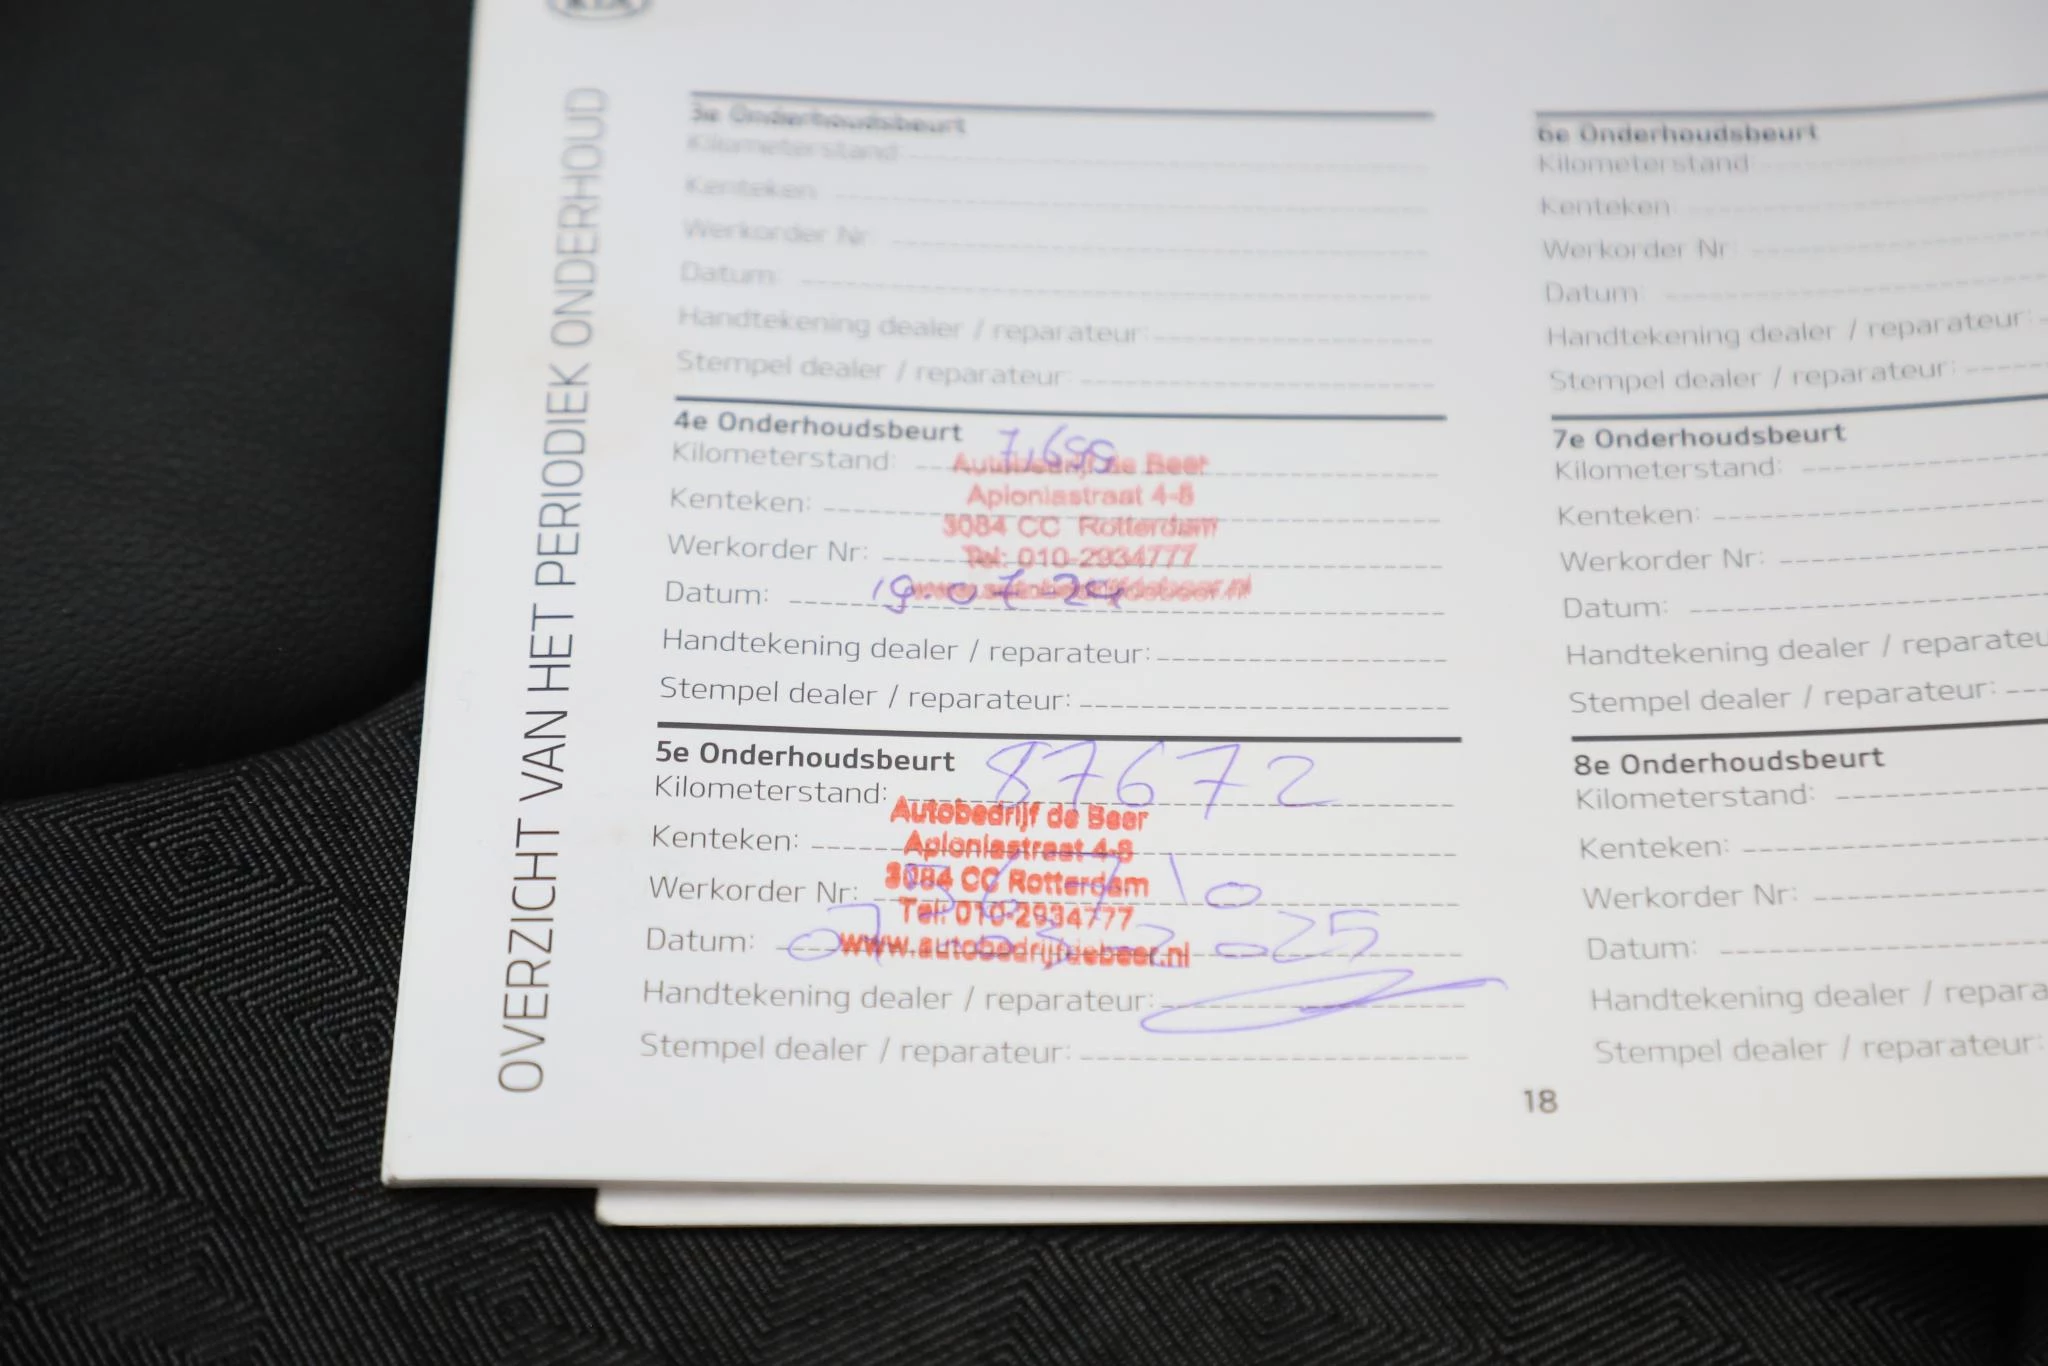 KIA
OVERZICHT VAN HET PERIODIEK ONDERHOUD
3e Onderhoudsbeurt
Kilometerstand:
Kenteken:
Werkorder Nr:
Datum:
Handtekening dealer / reparateur:
Stempel dealer / reparateur:
4e Onderhoudsbeurt
Kilometerstand:
Autobedrijf de Beer
Kenteken:
Aploniastraat 4-8
3084 CC Rotterdam
Werkorder Nr:
Tel: 010-2934777
Datum: 19-07-24
www.autobedrijfdebeer.nl
Handtekening dealer / reparateur:
Stempel dealer / reparateur:
5e Onderhoudsbeurt
Kilometerstand: 87672
Autobedrijf de Beer
Kenteken:
Aploniastraat 4-8
3084 CC Rotterdam
Werkorder Nr:
Tel: 010-2934777
Datum: 07 03 2025
www.autobedrijfdebeer.nl
Handtekening dealer / reparateur:
Stempel dealer / reparateur:
6e Onderhoudsbeurt
Kilometerstand:
Kenteken:
Werkorder Nr:
Datum:
Handtekening dealer / reparateur:
Stempel dealer / reparateur:
7e Onderhoudsbeurt
Kilometerstand:
Kenteken:
Werkorder Nr:
Datum:
Handtekening dealer / reparateu
Stempel dealer / reparateur:
8e Onderhoudsbeurt
Kilometerstand:
Kenteken:
Werkorder Nr:
Datum:
Handtekening dealer / repara
Stempel dealer / reparateur:
18